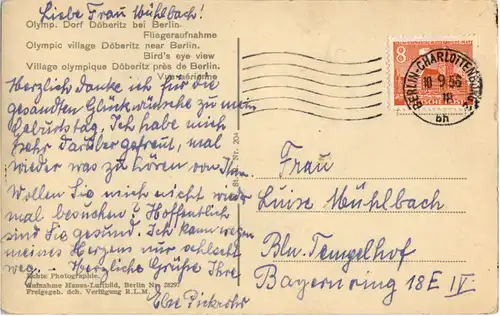 Liebe Frau Mühlbach!
Olymp. Dorf Döberitz bei Berlin.
Fliegeraufnahme
Olympic village Döberitz near Berlin.
Bird's eye view
Village olympique Döberitz près de Berlin.
Vue aérienne
Herzlich danke ich für die
gesamten Glückwünsche zu mein
Geburtstag. Ich habe mich
sehr darüber gefreut, mal
wieder was zu hören von Ihnen.
Wollen Sie mich nicht wieder
mal besuchen? Hoffentlich
sind Sie gesund. Ich kann wegen
meines Herzens nur schlecht
weg. Herzliche Grüße Ihre
Else Pickrohr
Echte Photographie.
Aufnahme Hansa-Luftbild, Berlin Nr. 28297
Freigegeb. dch. Verfügung R.L.M.
Nr. 204
8
BERLIN-CHARLOTTENBURG
10.9.56
bh
Frau
Luise Mühlbach
Bln. Tempelhof
Bayernring 18 E IV.